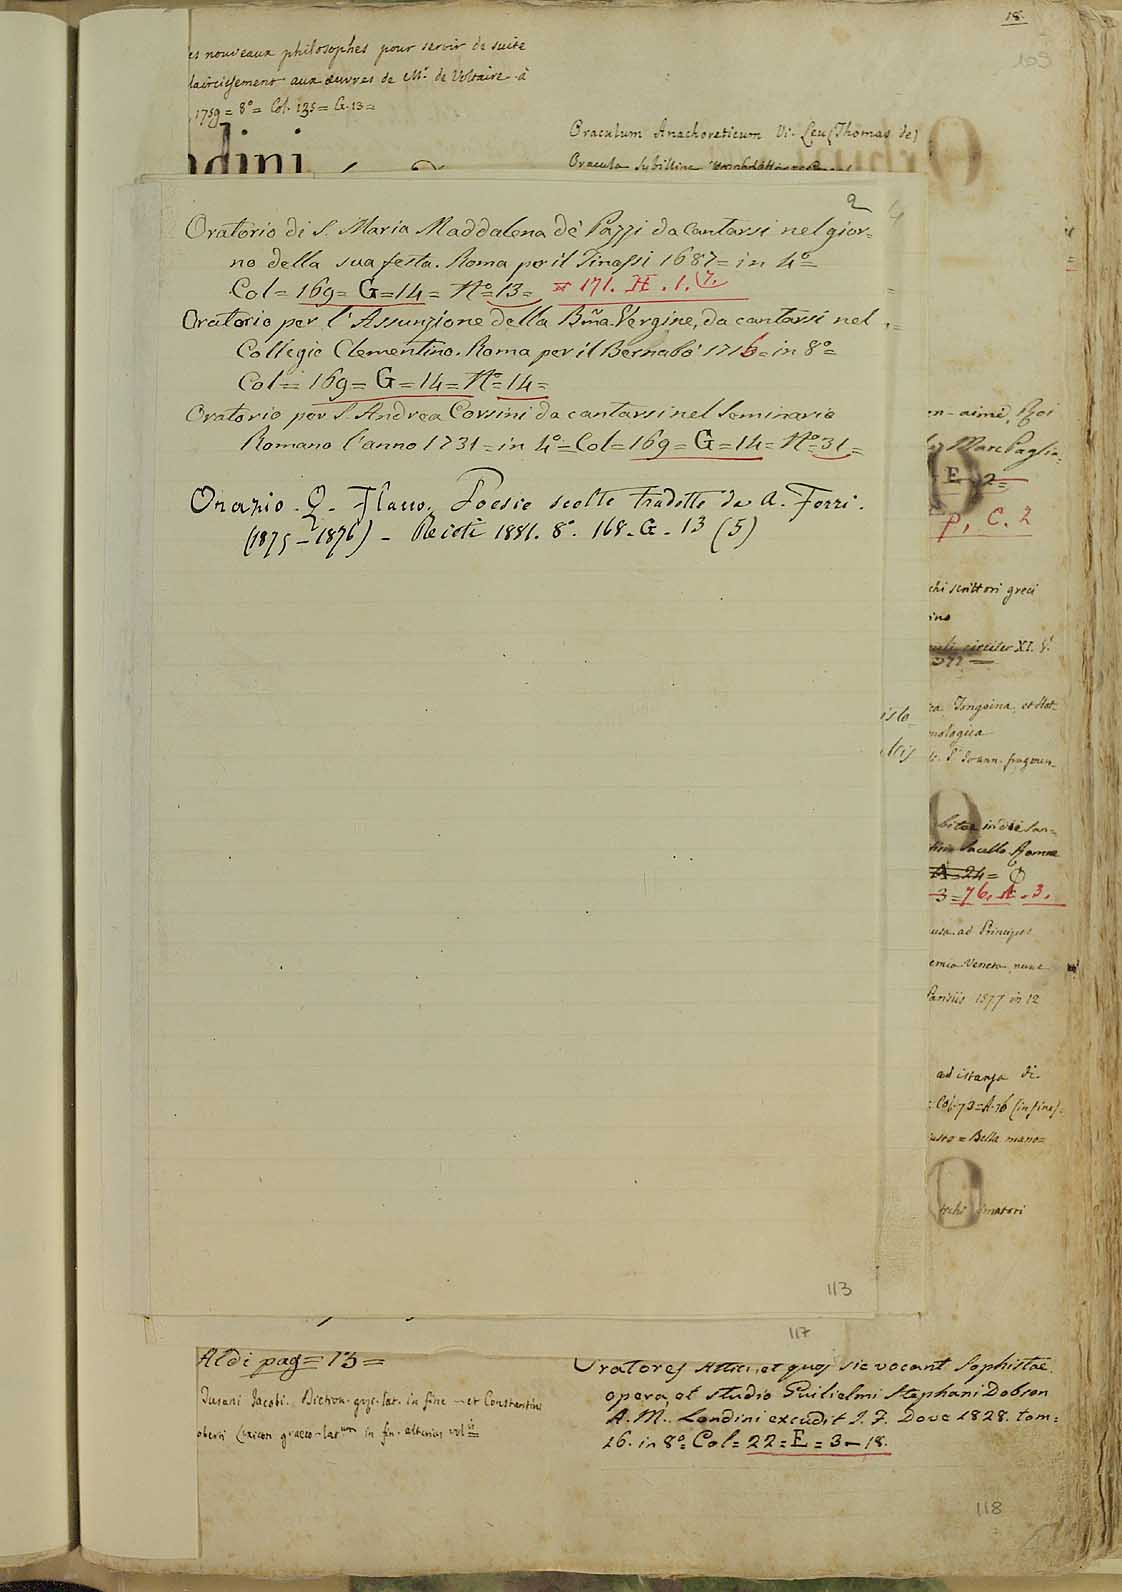 18.
105
es nouveaux philosophes pour servir de suite
laircissement aux œuvres de Mr. de Voltaire à
1759 = 8º = Col. 135 = G. 13 =
ndini
Oraculum Anachoreticum Vi. Leu (Thomas de)
Oracula Sybillina
2
4
Oratorio di S. Maria Maddalena de' Pazzi da cantarsi nel gior=
no della sua festa. Roma per il Tinassi 1687 = in 4º =
Col = 169 = G = 14 = Nº = 13 = 171. H. 1. (7.
Oratorio per l'Assunzione della Bm̃a Vergine, da cantarsi nel
Collegio Clementino. Roma per il Bernabò 1716 = in 8º =
Col = 169 = G = 14 = Nº = 14 =
Oratorio per S. Andrea Corsini da cantarsi nel Seminario
Romano l'anno 1731 = in 4º = Col = 169 = G = 14 = Nº = 31 =
Orazio. Q. Flacco. Poesie scelte tradotte da A. Forri.
(1875 - 1876) - Rieti 1881. 8º. 168. G. 13 (5)
en-aimé, Roi
Marc Paglia=
E
2 =
P, C. 2
chi scrittori greci
ino
circiter XI. V.
et Hot=
mologica
S. Joann. fragmen=
isto=
ltis
bitae in die San=
Sacello Romae
A = 24 =
3 = 76. A. 3.
usa. ad Principes
emia Veneta, nunc
Parisiis 1577 in 12
ad istanza di
= Col. 73 = A. 16 (in fine) =
usto = Bella mano =
imatori
113
117
Aldi pag = 13 =
Dusani Jacobi. Diction. grec. lat. in fine - et Constantini
oberti Lexicon graeco-latum in fin. alterius vol
Oratores Attici, et quos sic vocant Sophistae
opera, et studio Guilielmi Stephani Dobson
A. M. Londini excudit J. F. Dove 1828. tom=
16. in 8º = Col = 22 = E = 3 - 18.
118